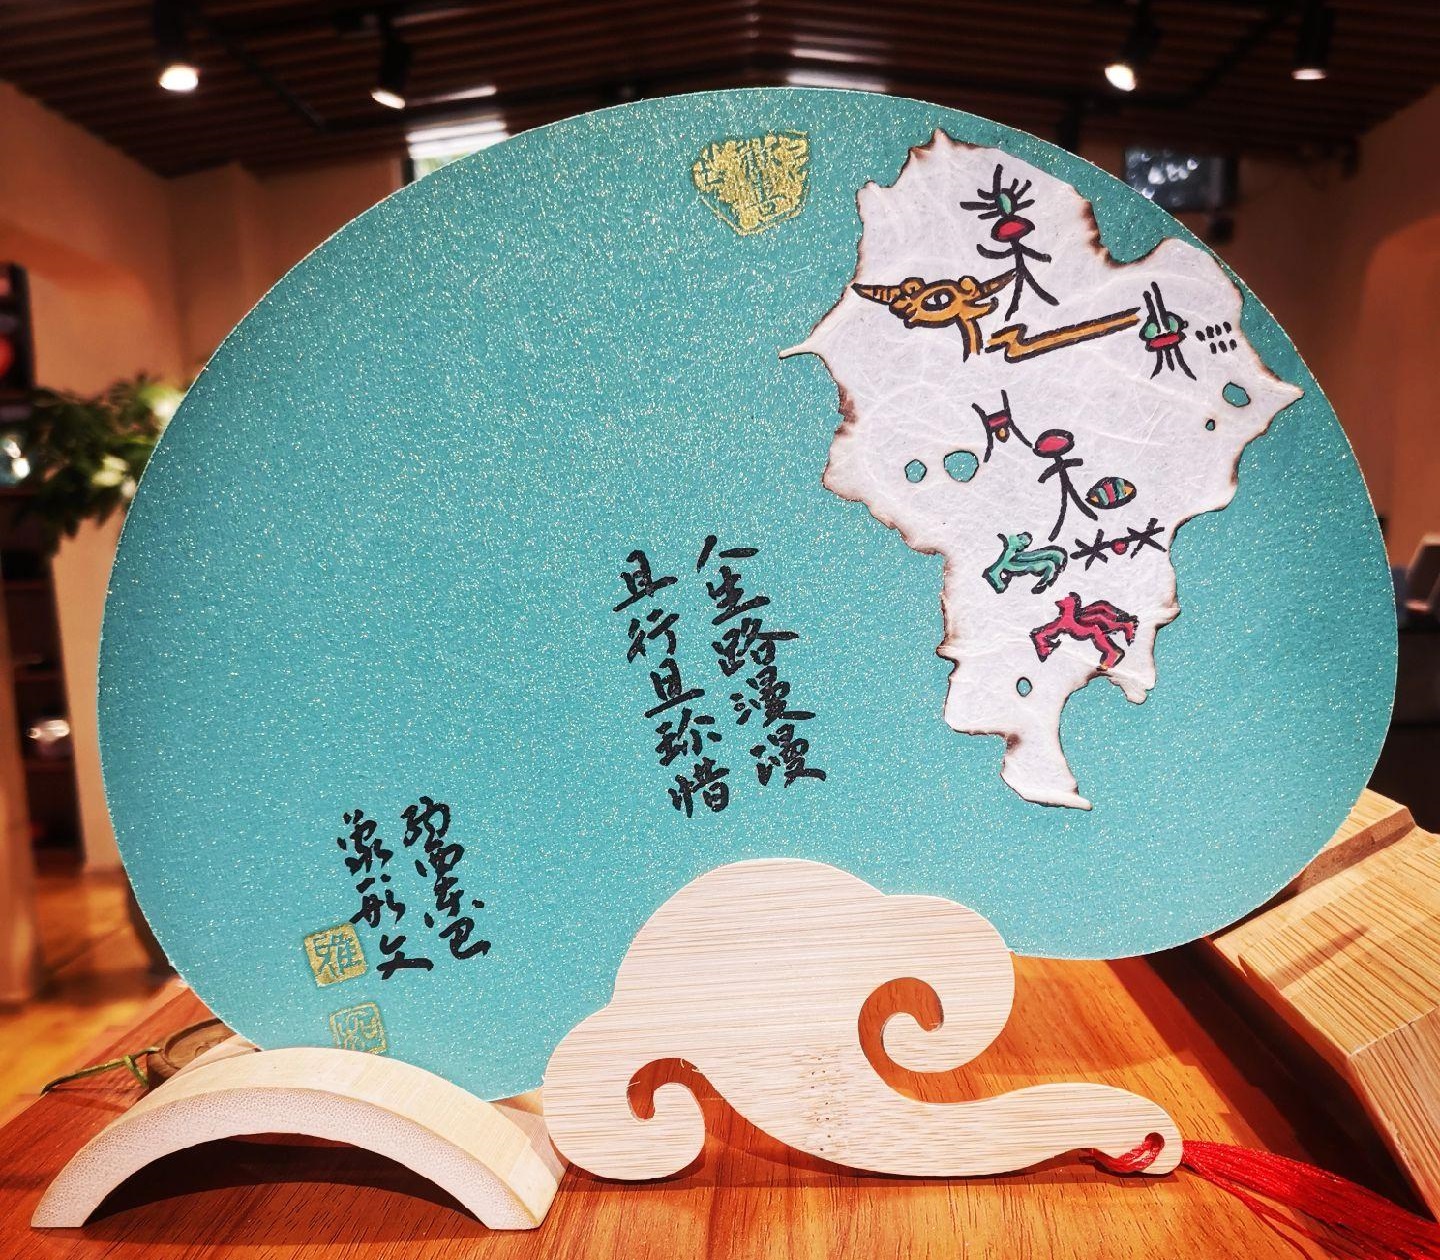 人生路漫漫
且行且珍惜
纳西东巴
象形文
雅